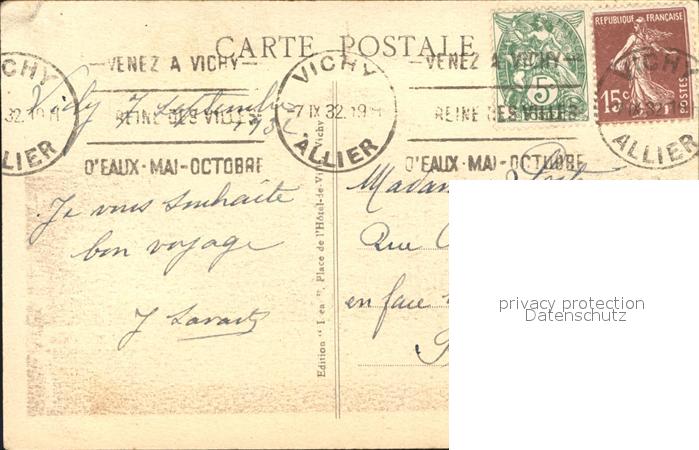 CARTE POSTALE
VICHY
32.19H
ALLIER
VENEZ A VICHY
REINE DES VILLES
D'EAUX-MAI-OCTOBRE
VICHY
7 IX 32.19H
ALLIER
VENEZ A VICHY
REINE DES VILLES
D'EAUX-MAI-OCTOBRE
VICHY
ALLIER
5
REPUBLIQUE FRANÇAISE
15c
POSTES
Vichy 7 septembre
1932
Je vous souhaite
bon voyage
Edition " , Place de l'Hôtel-de-Ville, Vichy
Rue
en face
privacy protection
Datenschutz